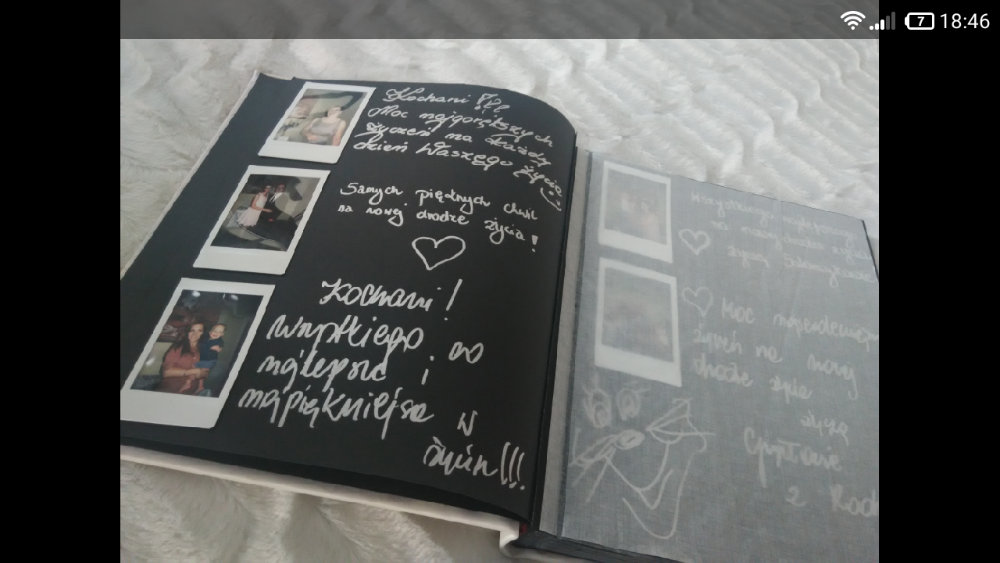 7 18:46
Kochani !!!
Moc najgorętszych
życzeń na każdy
dzień Waszego życia :)
Samych pięknych chwil
na nowej drodze życia!
Kochani!
Wszystkiego co
najlepsze i
najpiękniejsze w
życiu!!!
Wszystkiego
na nowej drodze
życzą
Moc
życzeń na nowej
drodze życia
życzą
z Rodz